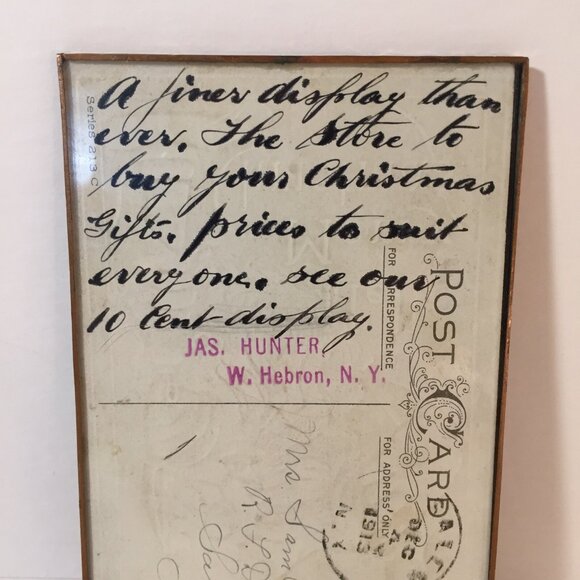 A finer display than
ever. The store to
buy your Christmas
Gifts. prices to suit
everyone. see our
10 Cent display.
JAS. HUNTER,
W. Hebron, N. Y.
Series 213 C
POST CARD
FOR CORRESPONDENCE
FOR ADDRESS ONLY
Mrs. Sam
R.F.D
DEC
1913
N.Y.